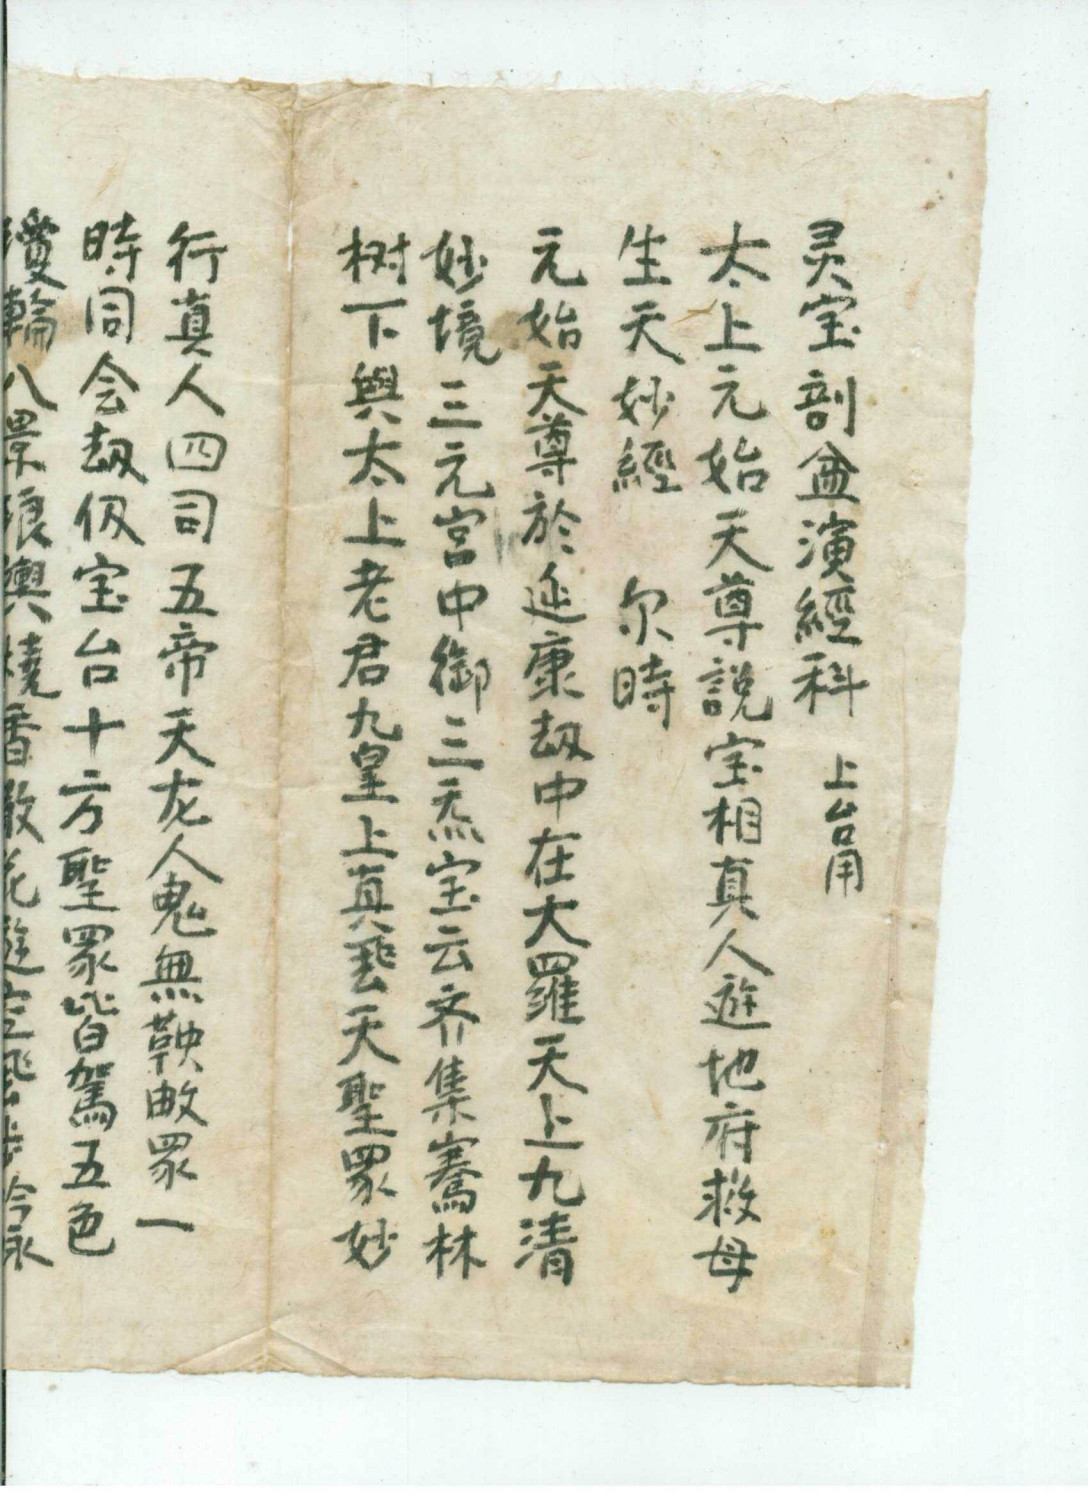 灵宝剖盆演經科 上台用
太上元始天尊説宝相真人遊地府救母
生天妙經 尔時
元始天尊於延康劫中在大羅天上九清
妙境三元宮中御三炁宝云齐集騫林
树下與太上老君九皇上真諸天聖眾妙
行真人四司五帝天龙人鬼無鞅数眾一
時同会劫仭宝台十方聖眾皆駕五色
瓊輪八景琅輿燒香散花遊空飛步吟咏